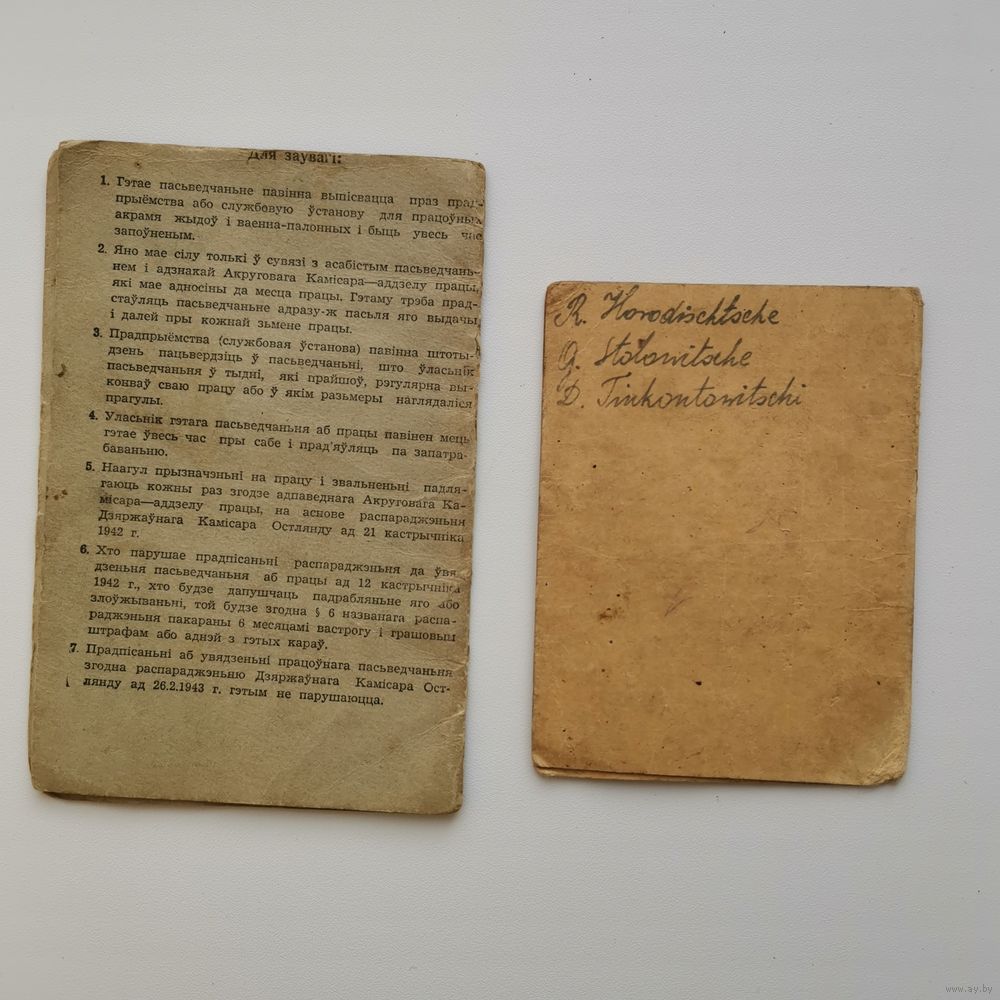 Для заувагі:
1. Гэтае пасьведчаньне павінна выпісвацца праз прад-
прыёмства або службовую ўстанову для працоўных
акрамя жыдоў і ваенна-палонных і быць увесь час
запоўненым.
2. Яно мае сілу толькі ў сувязі з асабістым пасьведчань-
нем і адзнакай Акруговага Камісара—аддзелу працы,
які мае адносіны да месца працы. Гэтаму трэба прад-
стаўляць пасьведчаньне адразу-ж пасьля яго выдачы
і далей пры кожнай зьмене працы.
3. Прадпрыёмства (службовая ўстанова) павінна штоты-
дзень пацьвердзіць ў пасьведчаньні, што ўласьнік
пасьведчаньня ў тыдні, які прайшоў, рэгулярна вы-
конваў сваю працу або ў якім разьмеры наглядаліся
прагулы.
4. Уласьнік гэтага пасьведчаньня аб працы павінен мець
гэтае ўвесь час пры сабе і прад'яўляць па запатра-
баваньню.
5. Наагул прызначэньні на працу і звальненьні падля-
гаюць кожны раз згодзе адпаведнага Акруговага Ка-
місара—аддзелу працы, на аснове распараджэньня
Дзяржаўнага Камісара Остлянду ад 21 кастрычніка
1942 г.
6. Хто парушае прадпісаньні распараджэньня да ўвя-
дзеньня пасьведчаньня аб працы ад 12 кастрычніка
1942 г., хто будзе дапушчаць падрабляньне яго або
злоўжываньні, той будзе згодна § 6 названага распа-
раджэньня пакараны 6 месяцамі вастрогу і грашовым
штрафам або адней з гэтых караў.
7. Прадпісаньні аб увядзеньні працоўнага пасьведчаньня
згодна распараджэньню Дзяржаўнага Камісара Ост-
лянду ад 26.2.1943 г. гэтым не парушаюцца.
R. Horodischtsche
G. Stolowitsche
D. Tinkontowitschi
www.ay.by